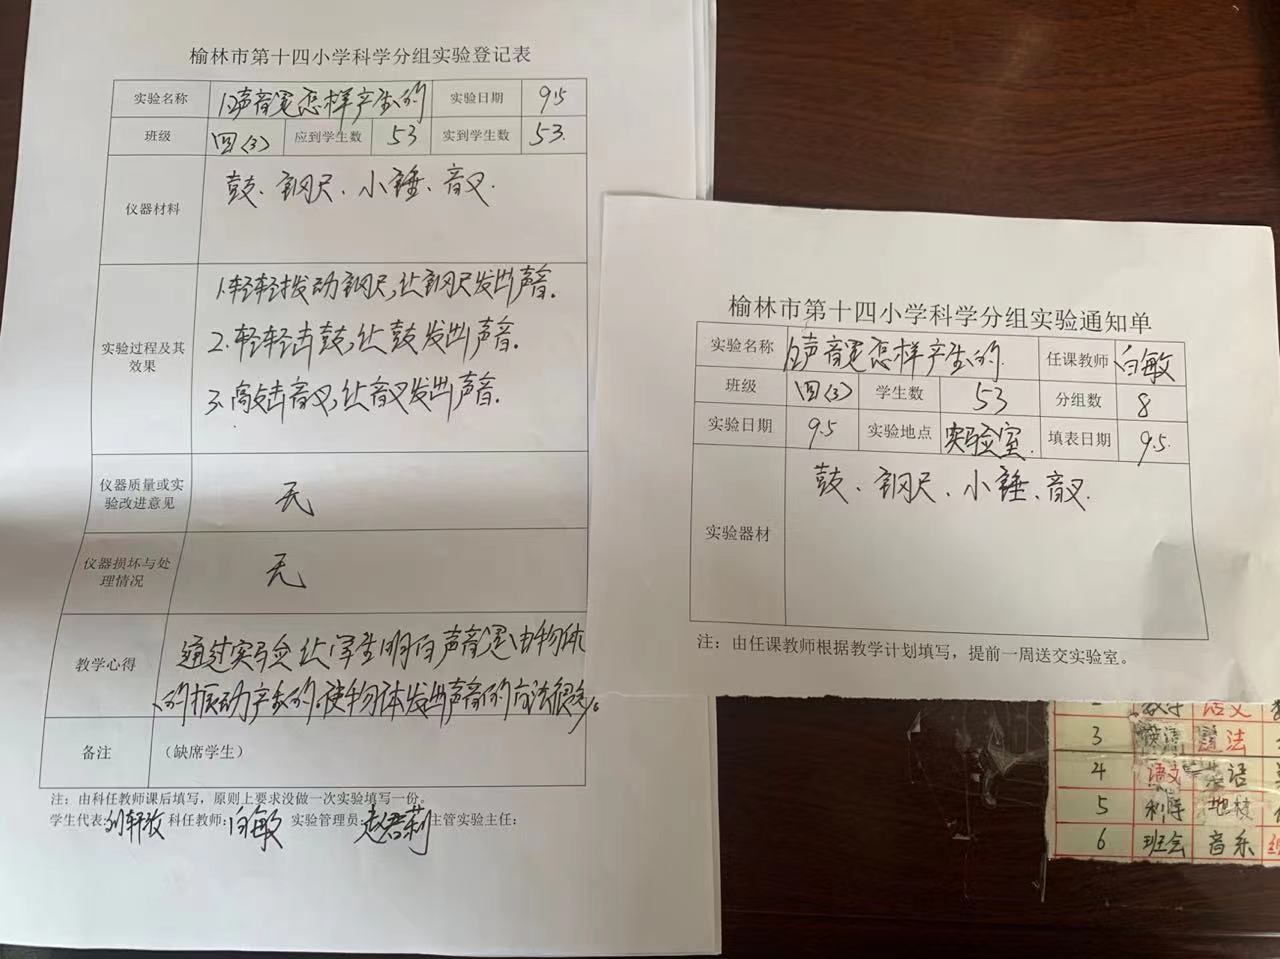 榆林市第十四小学科学分组实验登记表
实验名称 1.2声音是怎样产生的 实验日期 9.5
班级 四(3) 应到学生数 53 实到学生数 53.
仪器材料 鼓、钢尺、小锤、音叉.
实验过程及其效果
1.轻轻拨动钢尺,让钢尺发出声音.
2.轻轻击鼓,让鼓发出声音.
3.敲击音叉,让音叉发出声音.
仪器质量或实验改进意见 无
仪器损坏与处理情况 无
教学心得 通过实验让学生明白声音是由物体
的振动产生的.使物体发出声音的方法很多。
备注 (缺席学生)
注：由科任教师课后填写，原则上要求没做一次实验填写一份。
学生代表: 科任教师:白敏 实验管理员: 主管实验主任：
榆林市第十四小学科学分组实验通知单
实验名称 声音是怎样产生的. 任课教师 白敏
班级 四(3) 学生数 53 分组数 8
实验日期 9.5 实验地点 实验室. 填表日期 9.5.
实验器材 鼓、钢尺、小锤、音叉.
注：由任课教师根据教学计划填写，提前一周送交实验室。
数学 语文
3 法
4 语文
5
6 班会 音乐